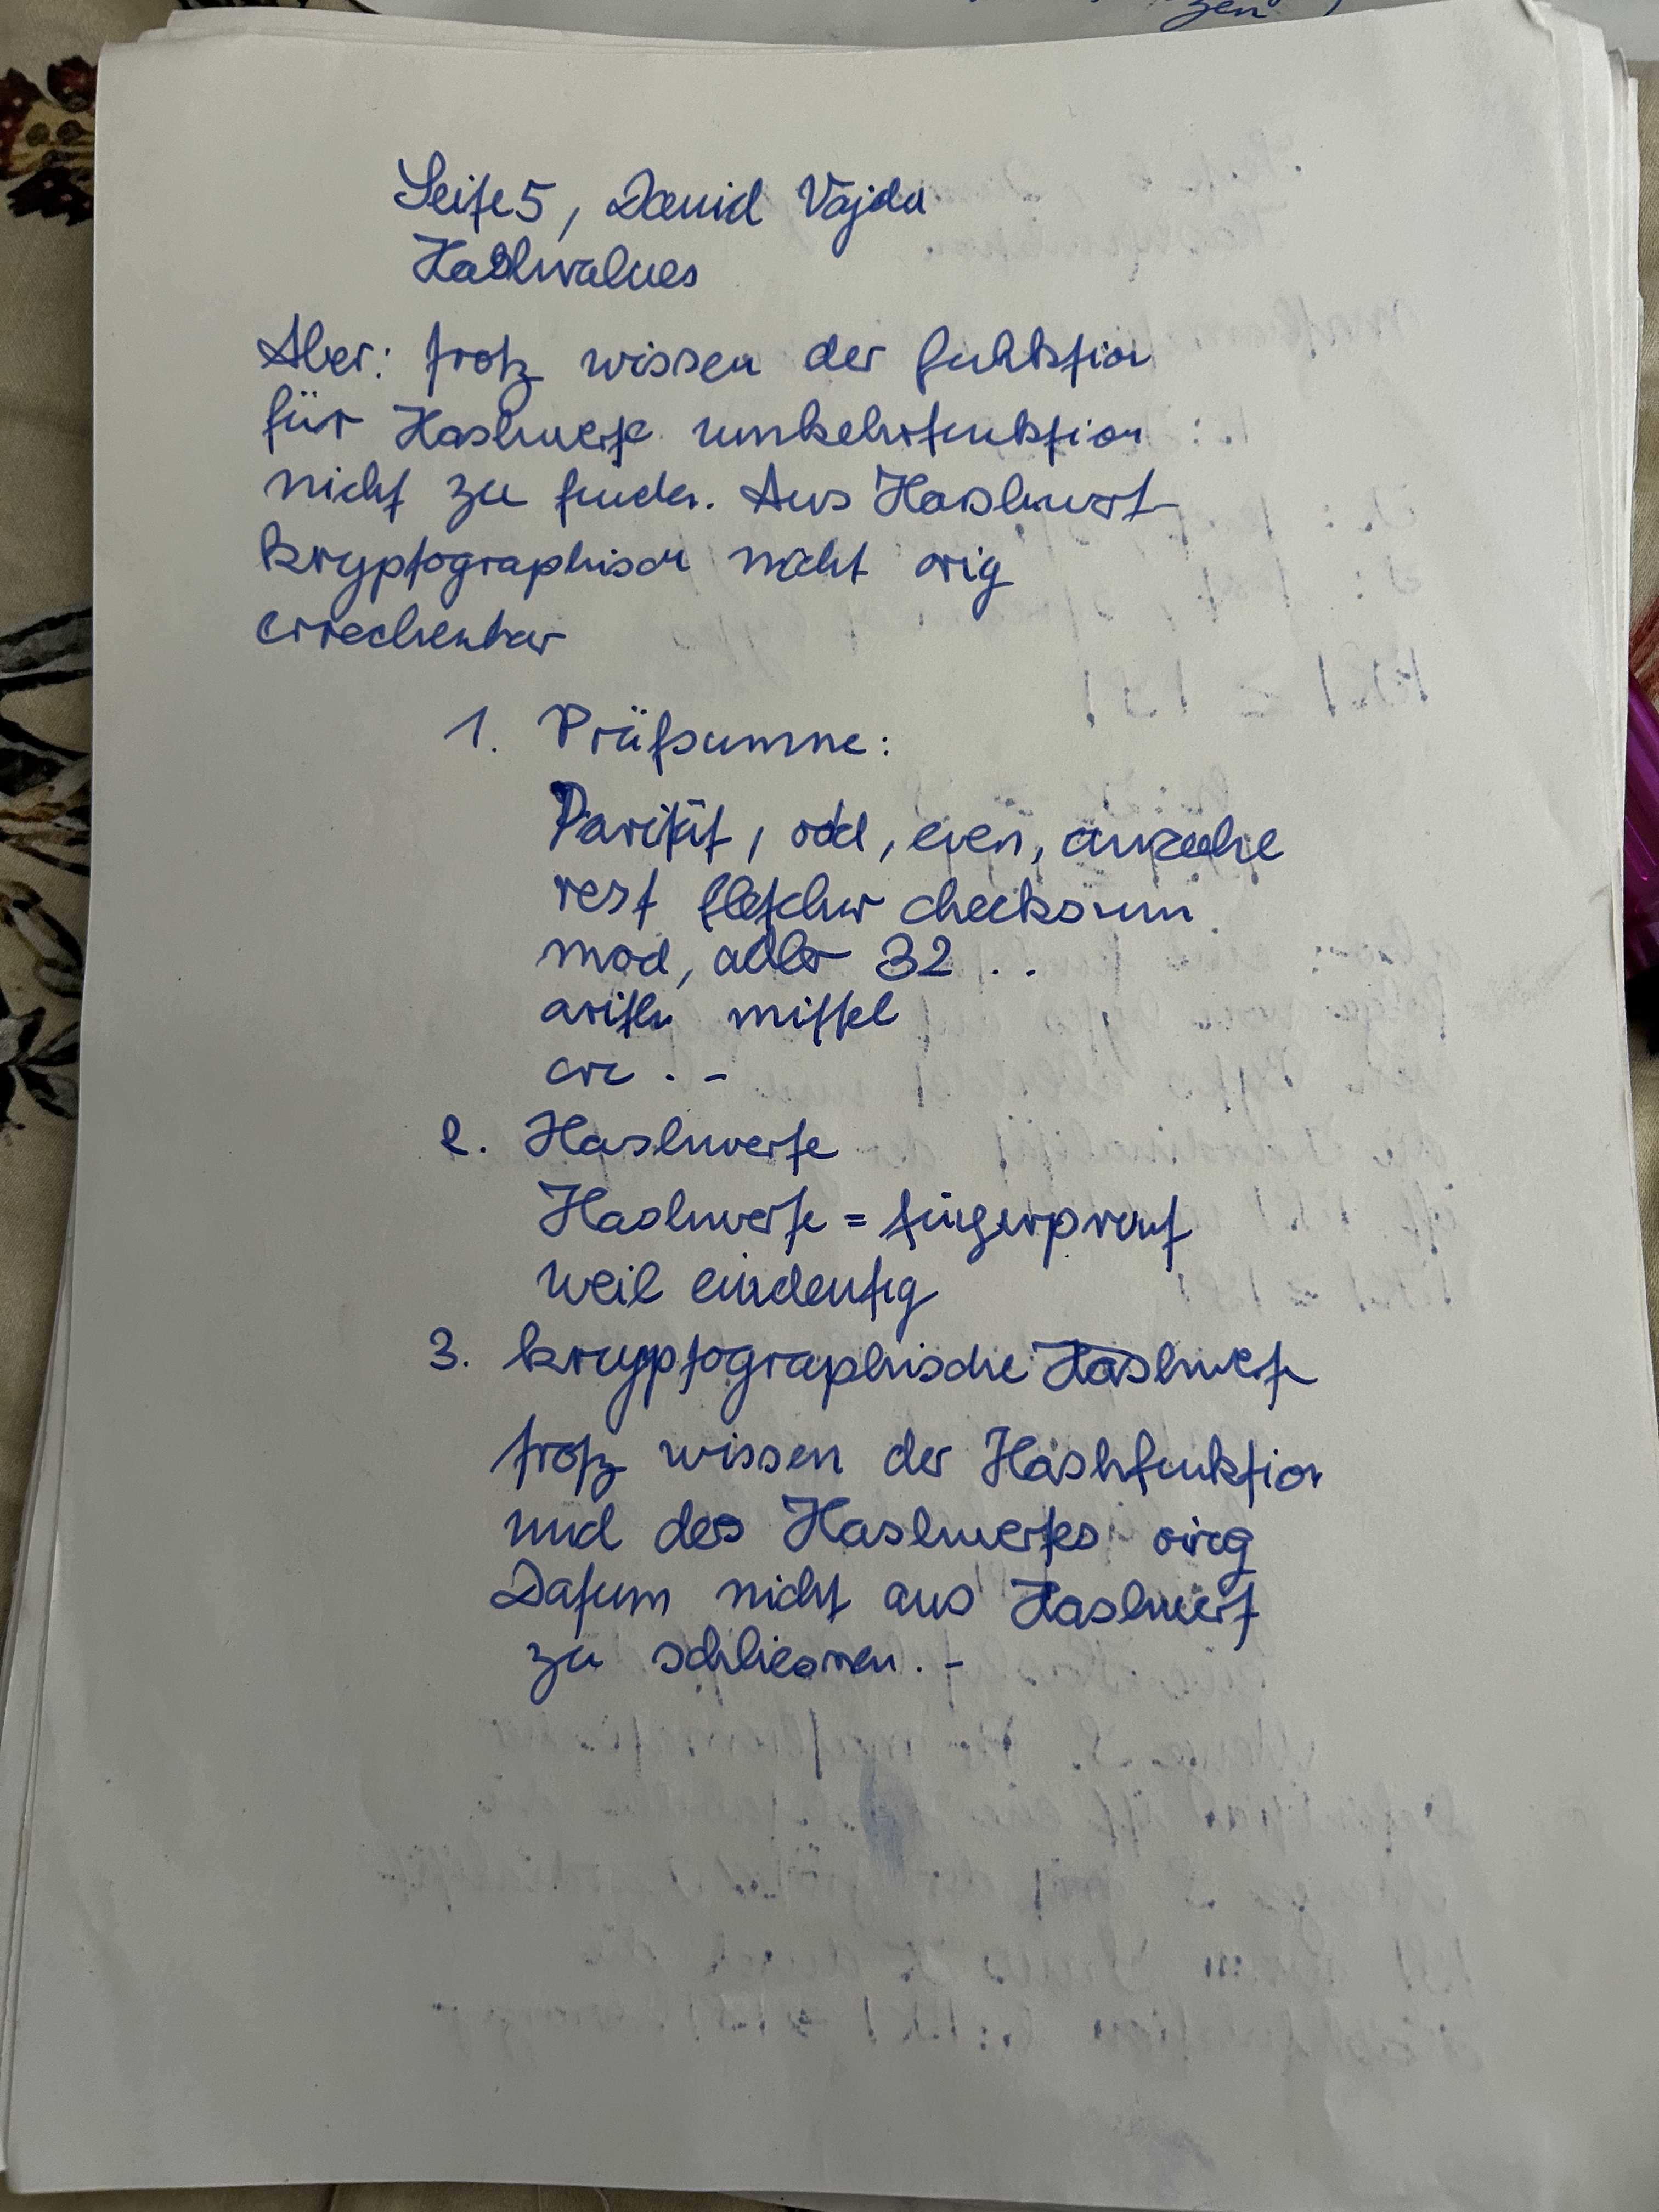 zen
Seite 5, David Vajda
Hashvalues
Aber: trotz wissen der funktion
für Hashwerte umkehrfunktion
nicht zu finden. Aus Hashwert
kryptographisch nicht orig
errechenbar
1. Prüfsumme:
Parität, odd, even,
rest fletcher checksum
mod, adler 32 ..
arith mittel
crc . -
2. Hashwerte
Hashwerte = fingerprint
weil eindeutig
3. kryptographische Hashwerte
trotz wissen der Hashfunktion
und des Hashwertes orig
Datum nicht aus Hashwert
zu schliessen. -